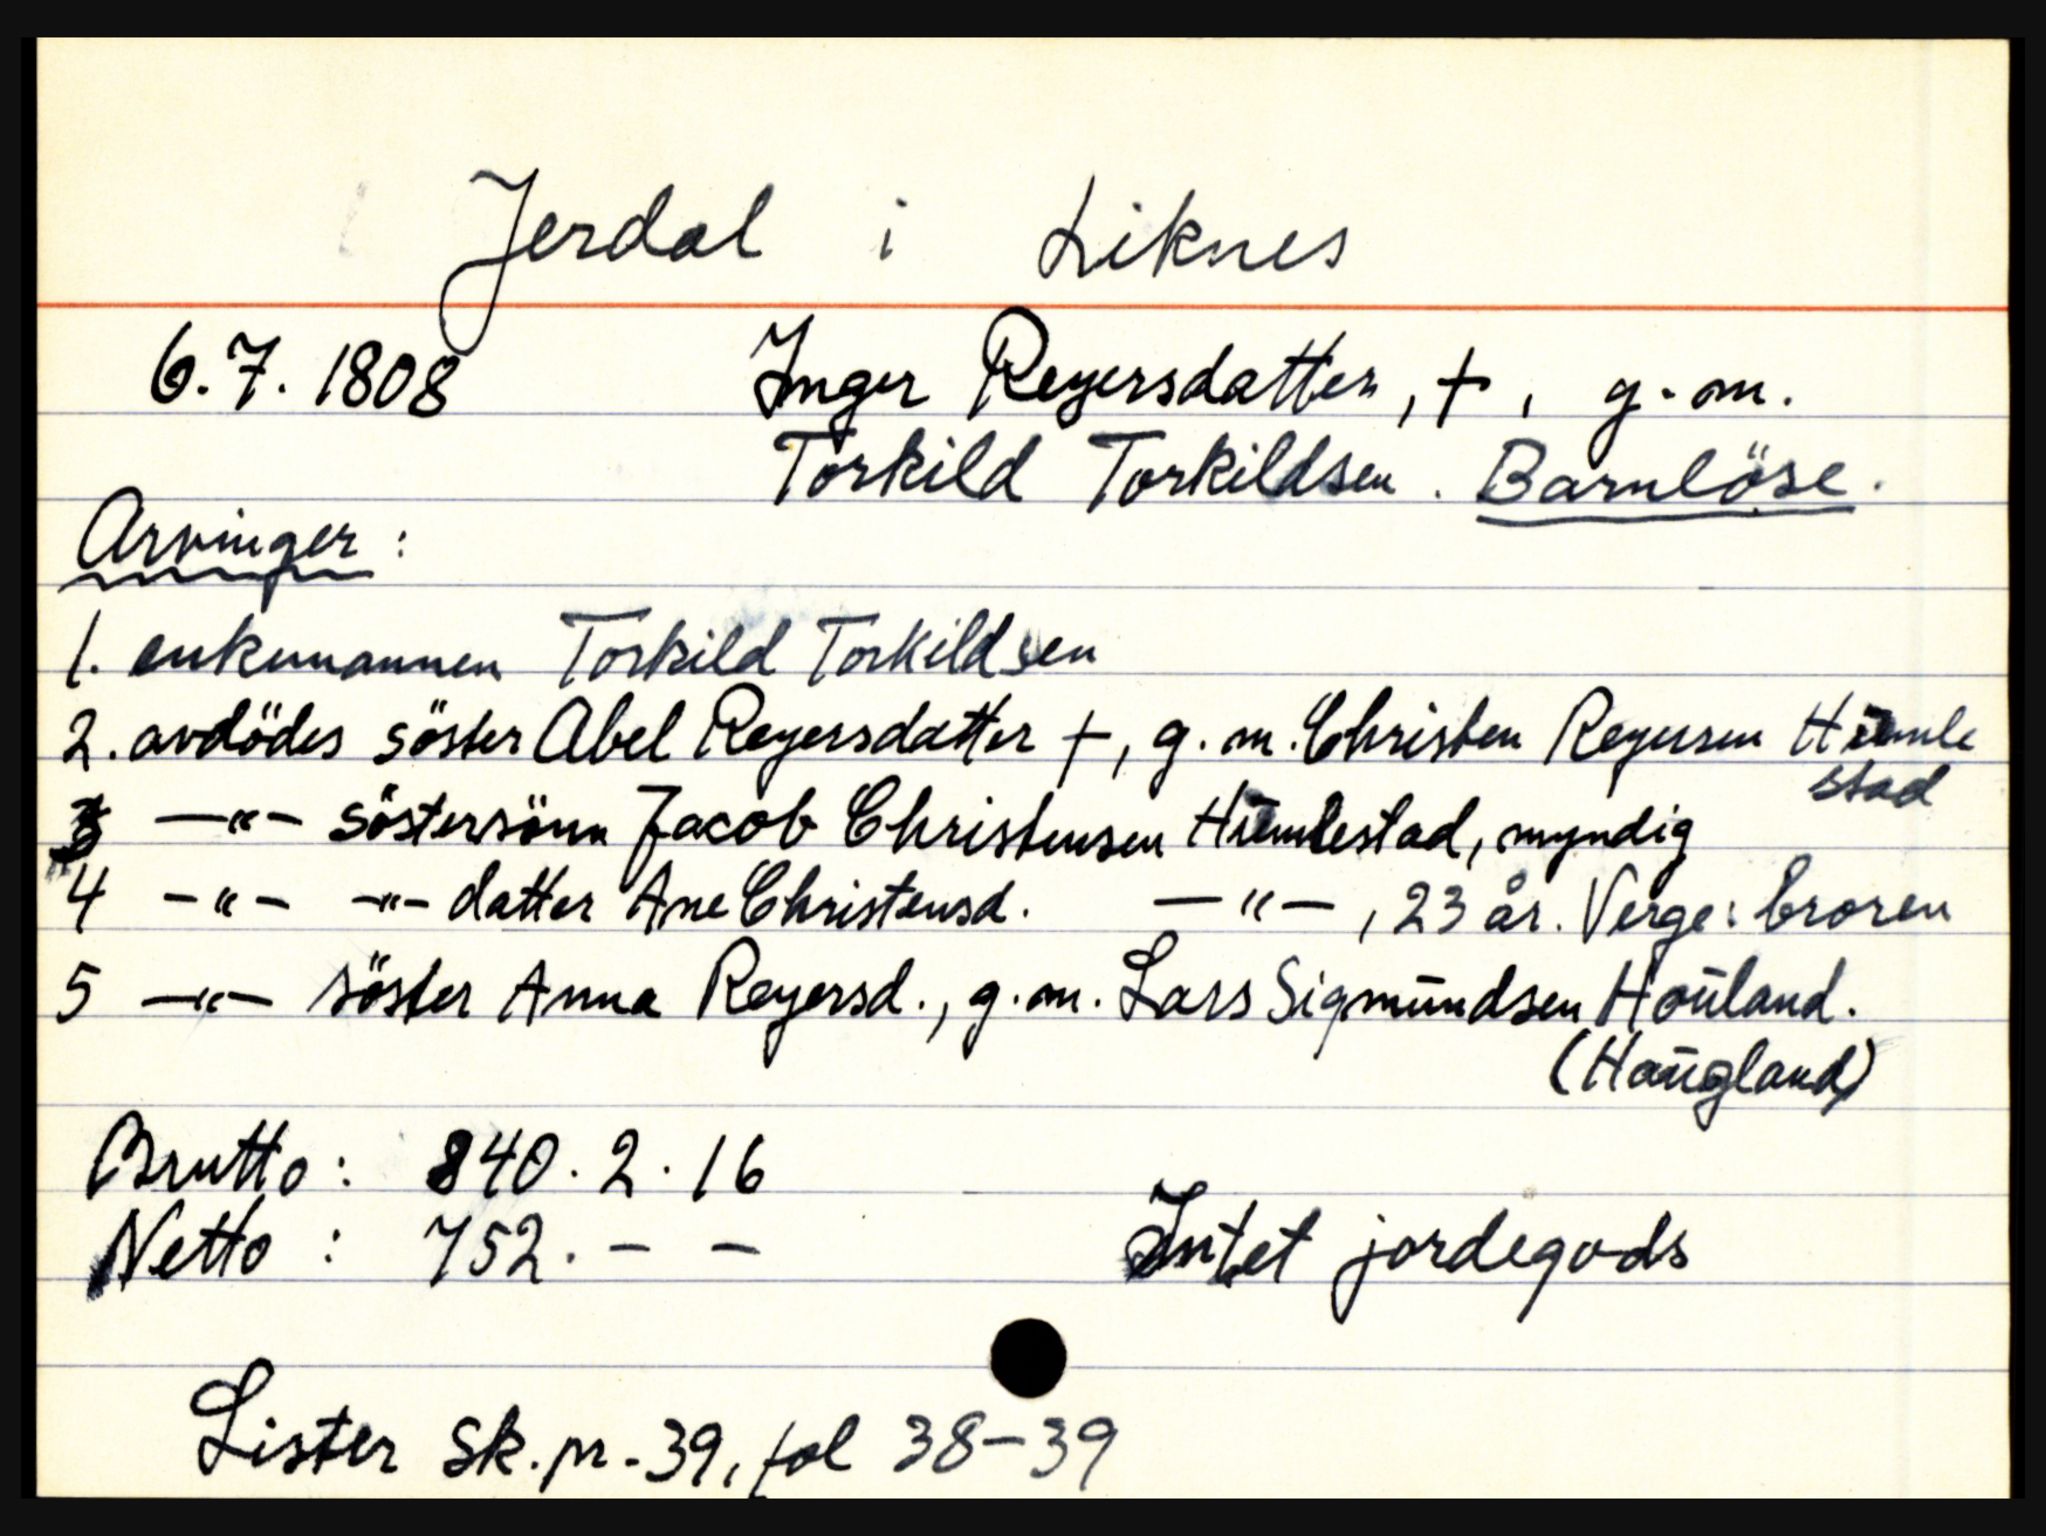 Jerdal i Liknes
6.7.1808 Inger Reyersdatter, +, g.m.
Torkild Torkildsen. Barnlöse.
Arvinger:
1. enkemannen Torkild Torkildsen
2. avdödes söster Abel Reyersdatter +, g.m. Christen Reyersen Humle
stad
3 —"— söstersönn Jacob Christensen Humlestad, myndig
4 —"— —"— datter Ane Christensd. —"—, 23 år. Verge: broren
5 —"— söster Anna Reyersd., g.m. Lars Sigmundsen Houland.
(Haugland)
Brutto: 840.2.16
Netto: 752. – –
Intet jordegods
Lister Sk.pr. 39, fol 38–39